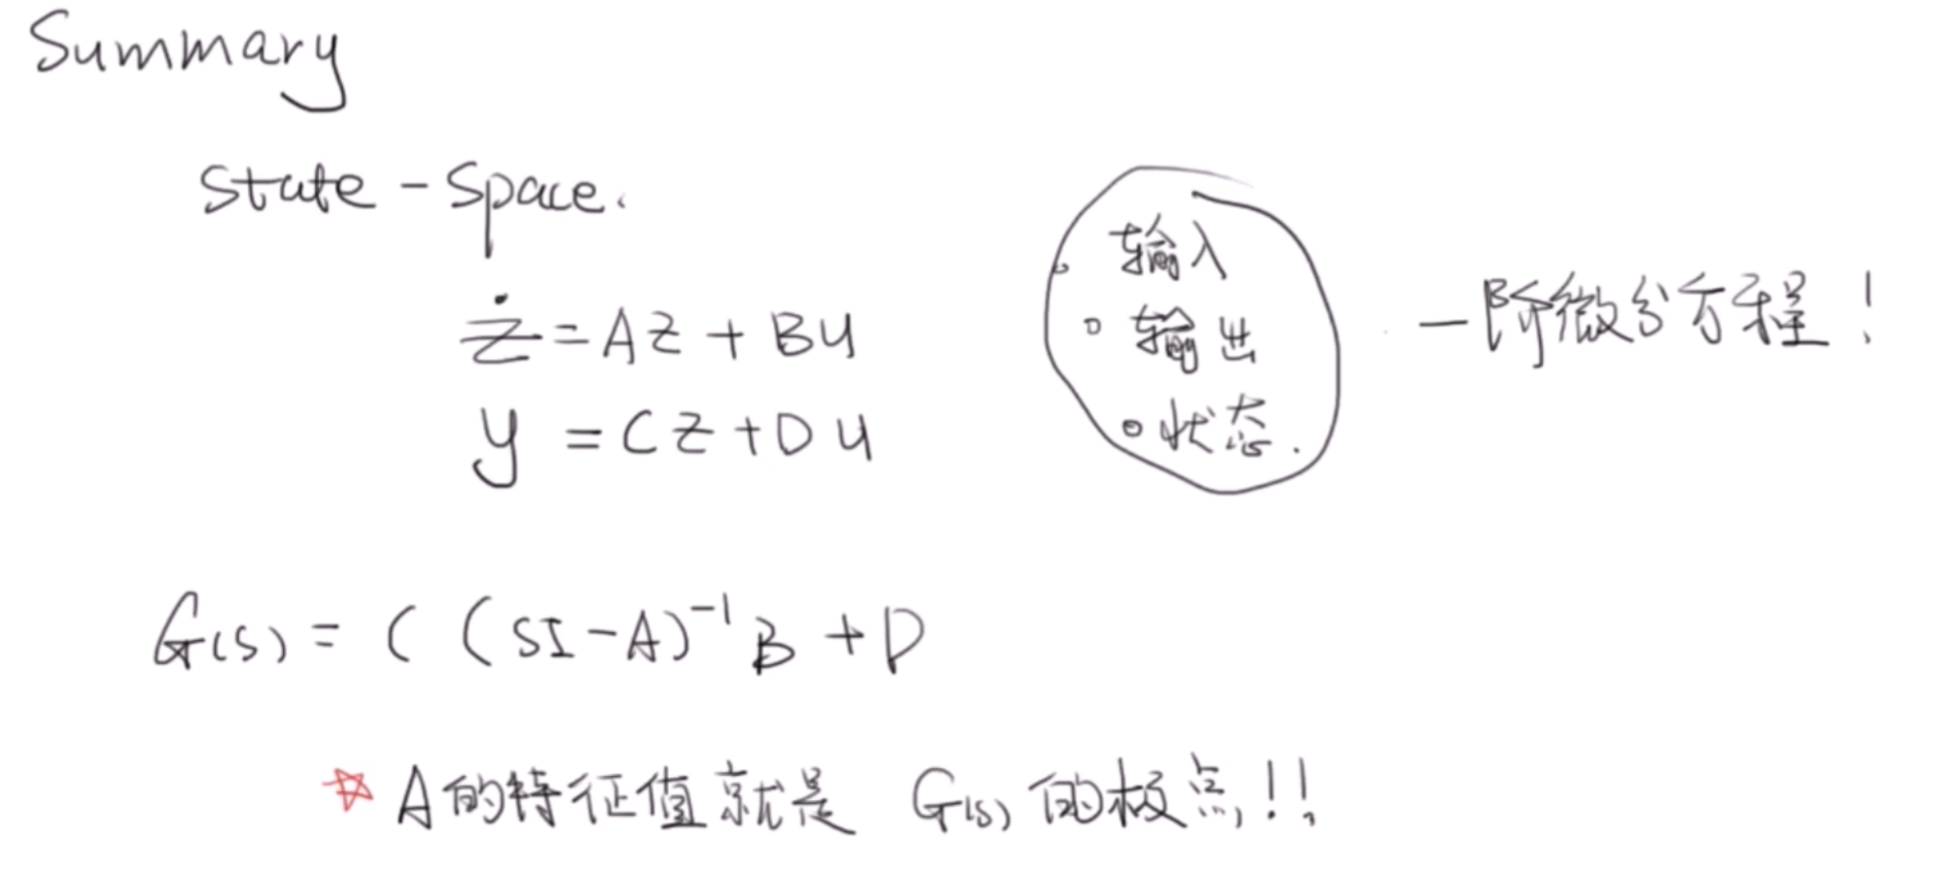 Summary
State-Space.
ż = Az + Bu
y = Cz + Du
输入
输出
状态.
一阶微分方程!
G(s) = C (sI-A)⁻¹ B + D
☆ A的特征值就是 G(s) 的极点!!